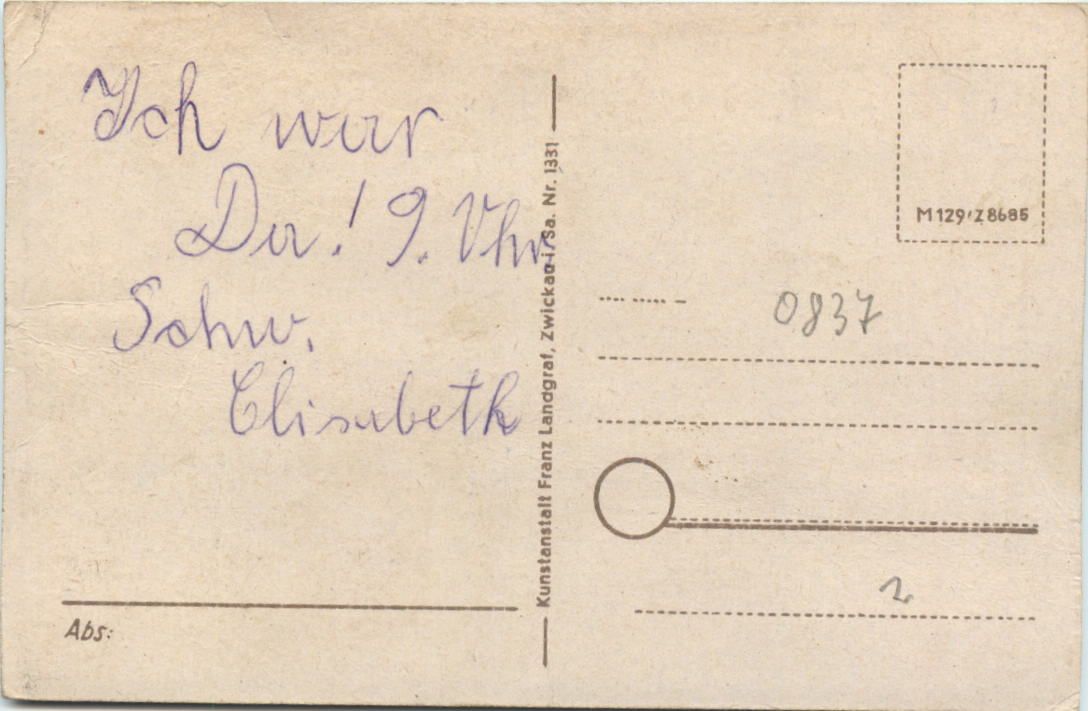 Ich war
Da! 9. Uhr
Schw.
Elisabeth
Abs:
Kunstanstalt Franz Landgraf, Zwickau i. Sa. Nr. 1331
M129/Z8685
0837
2